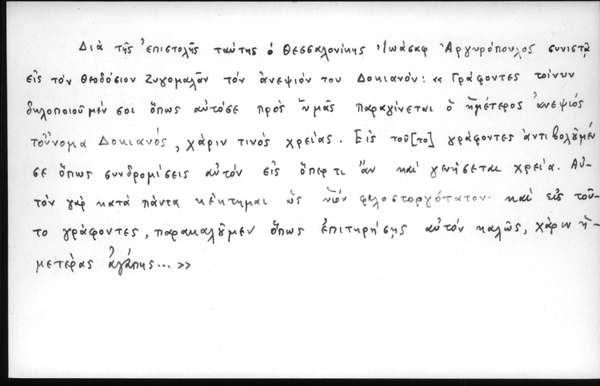 Διὰ τῆς ἐπιστολῆς ταύτης ὁ Θεσσαλονίκης Ἰωάσαφ Ἀργυρόπουλος συνιστᾷ
εἰς τὸν Θεοδόσιον Ζυγομαλᾶν τὸν ἀνεψιόν του Δοκιανόν: «Γράφοντες τοίνυν
δηλοποιοῦμέν σοι ὅπως αὐτόσε πρὸς ὑμᾶς παραγίνεται ὁ ἡμέτερος ἀνεψιὸς
τοὔνομα Δοκιανός, χάριν τινὸς χρείας. Εἰς τοῦ[το] γράφοντες ἀντιβολοῦμέν
σε ὅπως συνδρομίσεις αὐτὸν εἰς ὅπερ τι ἂν καὶ γενήσεται χρεία. Αὐ-
τὸν γὰρ κατὰ πάντα κέκτημαι ὡς υἱὸν φιλοστοργότατον· καὶ εἰς τοῦ-
το γράφοντες, παρακαλοῦμεν ὅπως ἐπιτηρήσῃς αὐτὸν καλῶς, χάριν ἡ-
μετέρας ἀγάπης...»